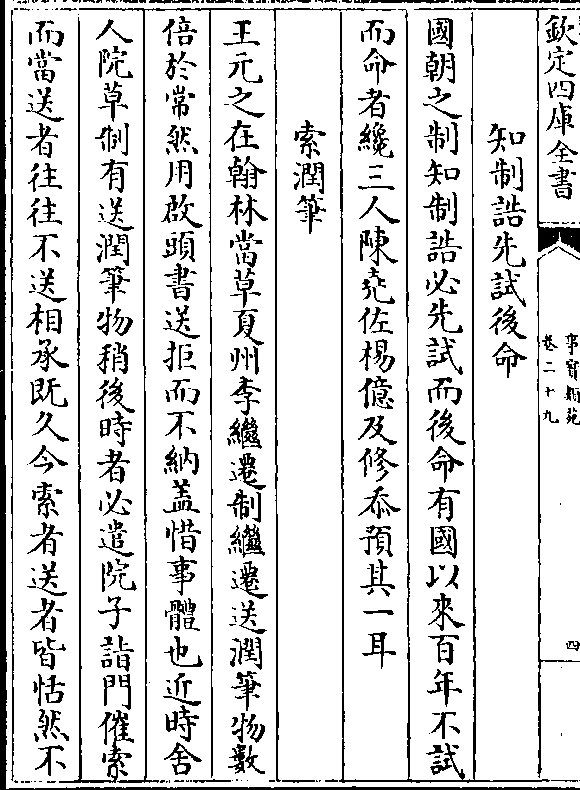 欽定四庫全書
事實類苑
卷二十九
四
知制誥先試後命
國朝之制知制誥必先試而後命有國以來百年不試
而命者纔三人陳堯佐楊億及修忝預其一耳
索潤筆
王元之在翰林當草夏州李繼遷制繼遷送潤筆物數
倍於常然用啟頭書送拒而不納盖惜事體也近時舍
人院草制有送潤筆物稍後時者必遣院子詣門催索
而當送者往往不送相承既久今索者送者皆恬然不